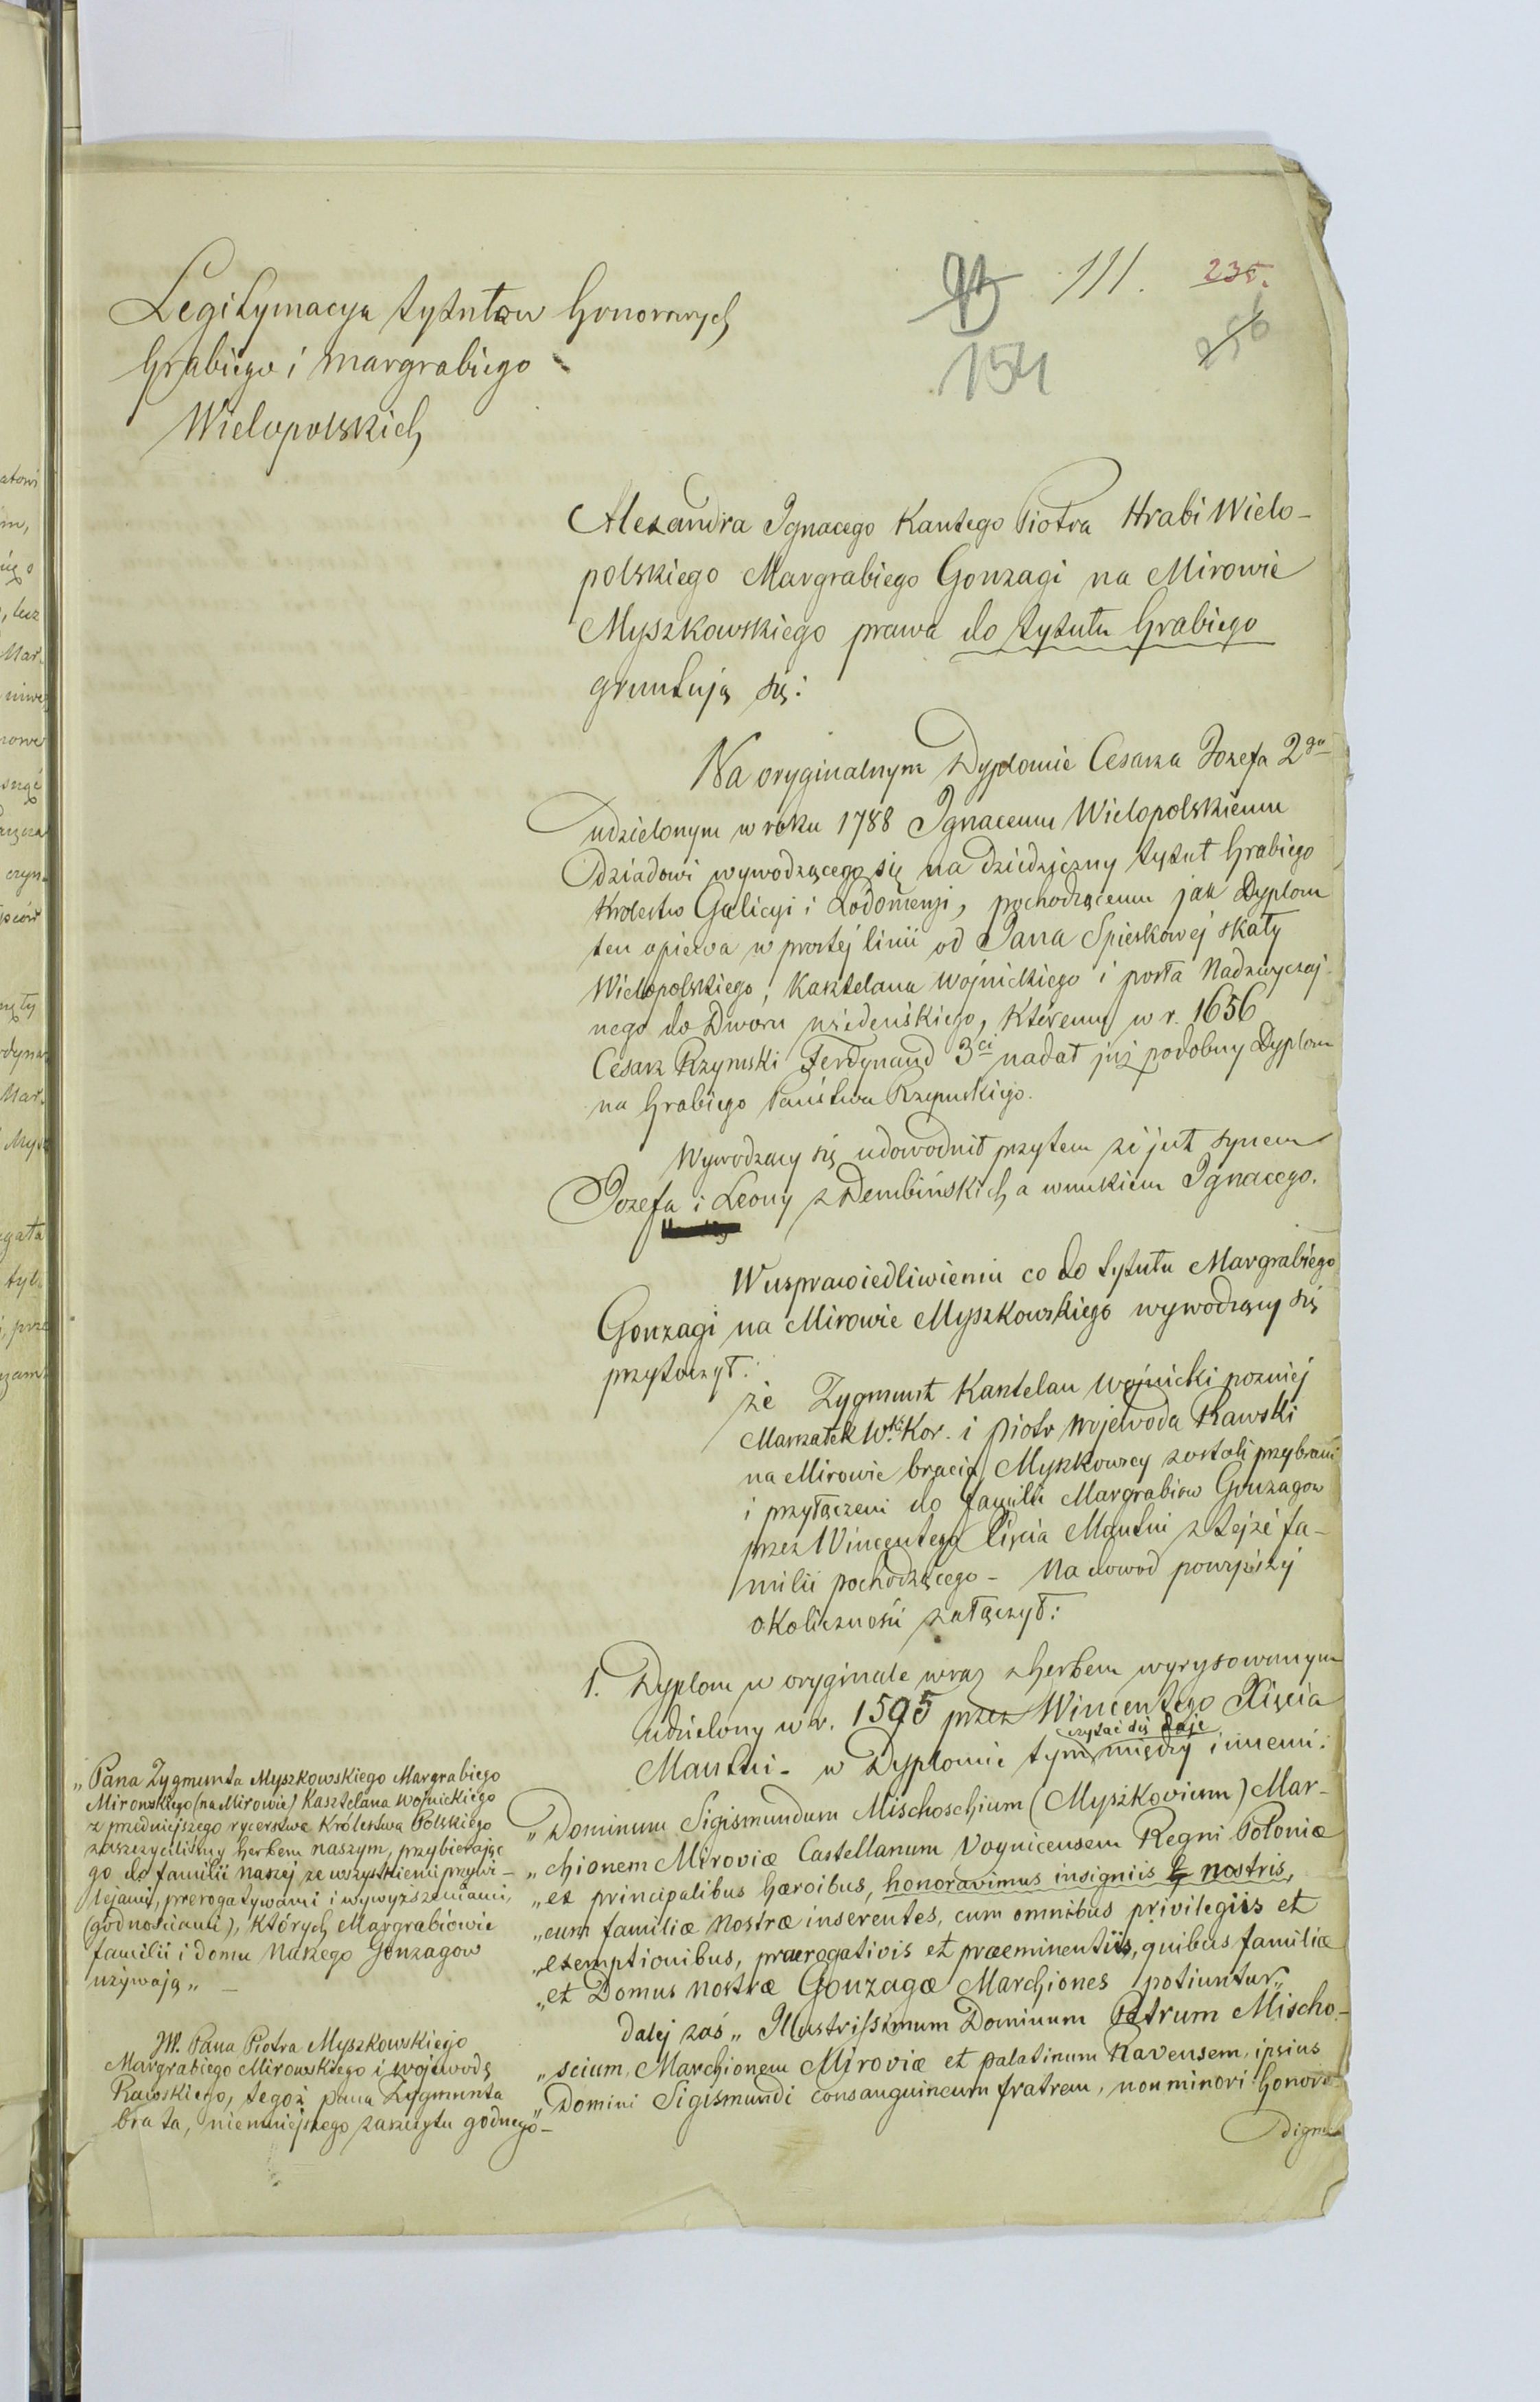 111.
235.
154
256
Legitymacya tytułow honorowych
hrabiego i margrabiego
Wielopolskich
Alexandra Ignacego Kantego Piotra Hrabi Wielo-
polskiego Margrabiego Gonzagi na Mirowie
Myszkowskiego prawa do tytułu hrabiego
gruntują się:
Na oryginalnym Dyplomie Cesarza Jozefa 2go
udzielonym w roku 1788 Ignacemu Wielopolskiemu
Dziadowi wywodzącego się na dziedziczny tytuł hrabiego
Krolestw Galicyi i Lodomeryi, pochodzącemu jak Dyplom
ten opiewa w prostej linii od Jana Spieskowej skały
Wielopolskiego, Kasztelana Wojnickiego i posła Nadzwyczaj-
nego do Dworu wiedeńskiego, któremu w r. 1656
Cesarz Rzymski Ferdynand 3ci nadał już podobny Dyplom
na hrabiego Państwa Rzymskiego.
Wywodzący się udowodnił przytem że jest synem
Jozefa i Leony z Dembińskich a wnukiem Ignacego.
W usprawiedliwieniu co do tytułu Margrabiego
Gonzagi na Mirowie Myszkowskiego wywodzący się
przytoczył:
że Zygmunt Kasztelan Wojnicki pozniej
Marszałek W.ki Kor. i Piotr Wojewoda Rawski
na Mirowie bracia Myszkowscy zostali przybrani
i przyłączeni do familii Margrabiow Gonzagow
przez Wincentego Xięcia Mantui z tejże fa-
milii pochodzącego - Na dowod powyższej
okoliczności załączył:
1. Dyplom w oryginale wraz z herbem wyrysowanym
udzielony w r. 1595 przez Wincentego Xięcia
Mantui - w Dyplomie tym czytać się daje między innemi:
„Dominum Sigismundum Mischoschium (Myszkovium) Mar-
„chionem Miroviæ Castellanum Voynicensem Regni Poloniæ
„ex principalibus hæroibus, honoravimus insigniis nostris,
„eum familiæ nostræ inserentes, cum omnibus privilegiis et
„exemptionibus, praerogativis et præeminentiis, quibus familiæ
„et Domus nostræ Gonzagæ Marchiones potiuntur„
dalej zaś „Illustrissimum Dominum Petrum Mischo-
„scium, Marchionem Miroviæ et palatinum Ravensem, ipsius
„Domini Sigismundi consanguineum fratrem, non minori honore
digne
„Pana Zygmunta Myszkowskiego Margrabiego
Mirowskiego (na Mirowie) Kasztelana Wojnickiego
z przedniejszego rycerstwa Królestwa Polskiego
zaszczyciliśmy herbem naszym, przybierając
go do familii naszej ze wszystkiemi przywi-
lejami, prerogatywami i wywyższeniami,
(godnościami), których Margrabiowie
familii i domu Naszego Gonzagow
używają„ -
JW. Pana Piotra Myszkowskiego
Margrabiego Mirowskiego i wojewodę
Rawskiego, tegoż pana Zygmunta
brata, niemniejszego zaszczytu godnego-